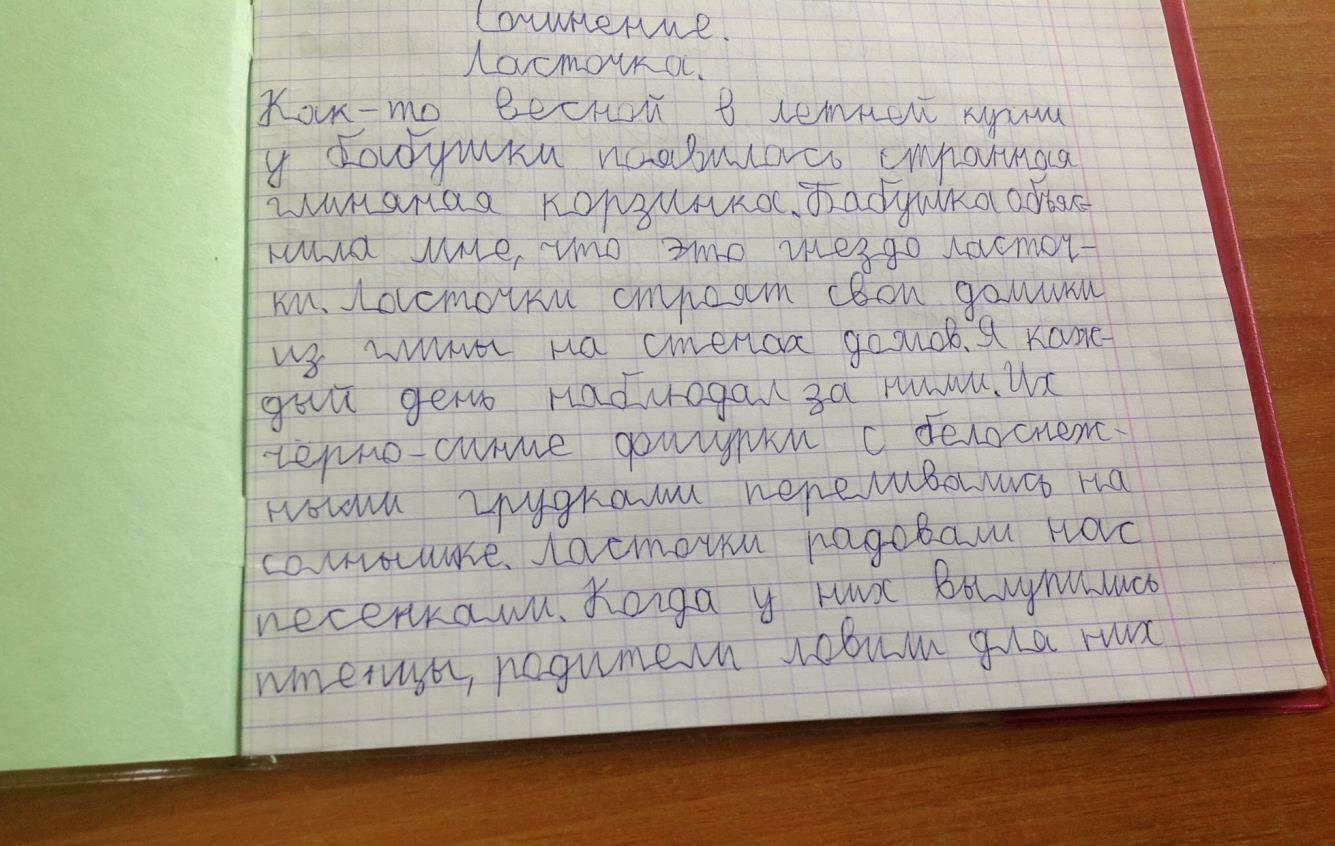 Сочинение.
Ласточка.
Как-то весной в летней кухни
у бабушки появилась странная
глиняная корзинка. Бабушка объяс-
нила мне, что это гнездо ласточ-
ки. Ласточки строят свои домики
из глины на стенах домов. Я каж-
дый день наблюдал за ними. Их
чёрно-синие фигурки с белоснеж-
ными грудками переливались на
солнышке. Ласточки радовали нас
песенками. Когда у них вылупились
птенцы, родители ловили для них